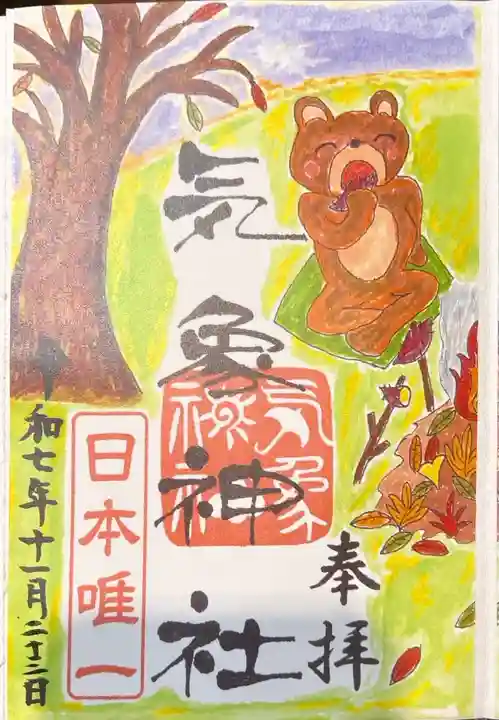 奉拝
気象神社
気象神社
日本唯一
令和七年十一月二十二日